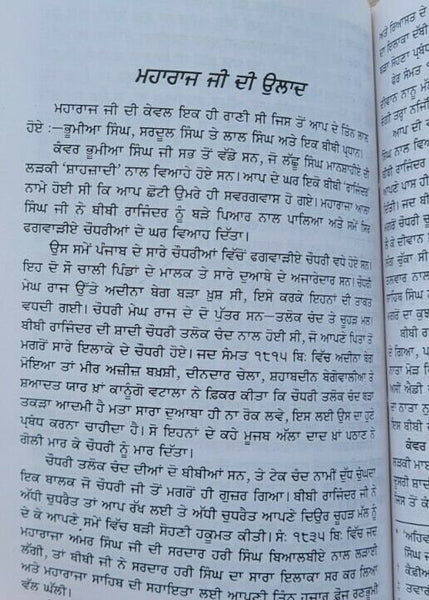 ਮਹਾਰਾਜ ਜੀ ਦੀ ਉਲਾਦ
ਮਹਾਰਾਜ ਜੀ ਦੀ ਕੇਵਲ ਇਕ ਹੀ ਰਾਣੀ ਸੀ ਜਿਸ ਤੋਂ ਆਪ ਦੇ ਤਿੰਨ ਲਾਲ
ਹੋਏ :–ਭੂਮੀਆ ਸਿੰਘ, ਸਰਦੂਲ ਸਿੰਘ ਤੇ ਲਾਲ ਸਿੰਘ ਅਤੇ ਇਕ ਬੀਬੀ ਪ੍ਰਧਾਨ।
ਕੰਵਰ ਭੂਮੀਆ ਸਿੰਘ ਜੀ ਸਭ ਤੋਂ ਵੱਡੇ ਸਨ, ਜੋ ਲੱਛੂ ਸਿੰਘ ਮਾਨਸ਼ਾਹੀਏ ਦੀ
ਲੜਕੀ 'ਸ਼ਾਹਜ਼ਾਦੀ' ਨਾਲ ਵਿਆਹੇ ਹੋਏ ਸਨ। ਆਪ ਦੇ ਘਰ ਇਕੋ ਬੀਬੀ 'ਰਾਜਿੰਦਰ'
ਨਾਮੇ ਹੋਈ ਸੀ ਕਿ ਆਪ ਛੋਟੀ ਉਮਰੇ ਹੀ ਸਵਰਗਵਾਸ ਹੋ ਗਏ। ਮਹਾਰਾਜਾ ਆਲਾ
ਸਿੰਘ ਜੀ ਨੇ ਬੀਬੀ ਰਾਜਿੰਦਰ ਨੂੰ ਬੜੇ ਪਿਆਰ ਨਾਲ ਪਾਲਿਆ ਅਤੇ ਸਮੇਂ ਸਿਰ
ਫਗਵਾੜੀਏ ਚੌਧਰੀਆਂ ਦੇ ਘਰ ਵਿਆਹ ਦਿੱਤਾ।
ਉਸ ਸਮੇਂ ਪੰਜਾਬ ਦੇ ਸਾਰੇ ਚੌਧਰੀਆਂ ਵਿੱਚੋਂ ਫਗਵਾੜੀਏ ਚੌਧਰੀ ਵਧੇ ਹੋਏ ਸਨ।
ਇਹ ਦੋ ਸੌ ਚਾਲੀ ਪਿੰਡਾਂ ਦੇ ਮਾਲਕ ਤੇ ਸਾਰੇ ਦੁਆਬੇ ਦੇ ਅਜਾਰੇਦਾਰ ਸਨ। ਚੌਧਰੀ
ਮੇਘ ਰਾਜ ਉੱਤੇ ਅਦੀਨਾ ਬੇਗ ਬੜਾ ਖ਼ੁਸ਼ ਸੀ, ਇਸੇ ਕਰਕੇ ਇਹਨਾਂ ਦੀ ਤਾਕਤ
ਵਧਦੀ ਗਈ। ਚੌਧਰੀ ਮੇਘ ਰਾਜ ਦੇ ਦੋ ਪੁੱਤਰ ਸਨ–ਤਲੋਕ ਚੰਦ ਤੇ ਚੂਹੜ ਮਲ।
ਬੀਬੀ ਰਾਜਿੰਦਰ ਦੀ ਸ਼ਾਦੀ ਚੌਧਰੀ ਤਲੋਕ ਚੰਦ ਨਾਲ ਹੋਈ ਸੀ, ਜੋ ਆਪਣੇ ਪਿਤਾ ਤੋਂ
ਮਗਰੋਂ ਸਾਰੇ ਇਲਾਕੇ ਦੇ ਚੌਧਰੀ ਹੋਏ। ਜਦ ਸੰਮਤ ੧੮੧੫ ਬਿ: ਵਿੱਚ ਅਦੀਨਾ ਬੇਗ
ਮੋਇਆ ਤਾਂ ਮੀਰ ਅਜ਼ੀਜ਼ ਬਖ਼ਸ਼ੀ, ਦੀਨਦਾਰ ਚੇਲਾ, ਸ਼ਹਾਬਦੀਨ ਬੇਗੋਵਾਲੀਆ ਤੇ
ਸ਼ਆਦਤ ਯਾਰ ਖ਼ਾਂ ਕਾਨੂੰਗੋ ਵਟਾਲਾ ਨੇ ਫ਼ਿਕਰ ਕੀਤਾ ਕਿ ਚੌਧਰੀ ਤਲੋਕ ਚੰਦ ਬੜਾ
ਤਕੜਾ ਆਦਮੀ ਹੈ ਮਤਾ ਸਾਰਾ ਦੁਆਬਾ ਹੀ ਨਾ ਰੋਕ ਲਵੇ, ਇਸ ਲਈ ਉਸ ਦਾ ਹੁਣੇ
ਪ੍ਰਬੰਧ ਕਰਨਾ ਚਾਹੀਦਾ ਹੈ। ਸੋ ਇਹਨਾਂ ਦੇ ਕਹੇ ਮੂਜਬ ਅੱਲਾ ਦਾਦ ਖ਼ਾਂ ਪਠਾਣ ਨੇ
ਗੋਲੀ ਮਾਰ ਕੇ ਚੌਧਰੀ ਨੂੰ ਮਾਰ ਦਿੱਤਾ।
ਚੌਧਰੀ ਤਲੋਕ ਚੰਦ ਦੀਆਂ ਦੋ ਬੀਬੀਆਂ ਸਨ, ਤੇ ਟੇਕ ਚੰਦ ਨਾਮੀਂ ਦੁੱਧ ਚੁੰਘਦਾ
ਇਕ ਬਾਲਕ ਜੋ ਚੌਧਰੀ ਜੀ ਤੋਂ ਮਗਰੋਂ ਹੀ ਗੁਜ਼ਰ ਗਿਆ। ਬੀਬੀ ਰਾਜਿੰਦਰ ਜੀ ਨੇ
ਅੱਧੀ ਚੁਧਰੈਤ ਤਾਂ ਆਪ ਰੱਖ ਲਈ ਤੇ ਅੱਧੀ ਚੁਧਰੈਤ ਆਪਣੇ ਦਿਉਰ ਚੂਹੜ ਮੱਲ ਨੂੰ
ਦੇ ਕੇ ਆਪਣੇ ਸਮੇਂ ਵਿੱਚ ਬੜੀ ਸੋਹਣੀ ਹਕੂਮਤ ਕੀਤੀ। ਸੰ: ੧੮੩੫ ਬਿ: ਵਿੱਚ ਜਦ
ਮਹਾਰਾਜਾ ਅਮਰ ਸਿੰਘ ਜੀ ਦੀ ਸਰਦਾਰ ਹਰੀ ਸਿੰਘ ਬਿਆਲਬੀਏ ਨਾਲ ਲੜਾਈ
ਲੱਗੀ, ਤਾਂ ਬੀਬੀ ਜੀ ਨੇ ਸਰਦਾਰ ਹਰੀ ਸਿੰਘ ਦਾ ਸਾਰਾ ਇਲਾਕਾ ਸਰ ਕਰ ਲਿਆ
ਅਤੇ ਮਹਾਰਾਜਾ ਸਾਹਿਬ ਦੀ ਸਹਾਇਤਾ ਲਈ ਆਪਣੀ ਤਿੰਨ ਹਜ਼ਾਰ ਫੌਜ ਰਣਭੂਮੀ
ਵੱਲ ਘੱਲੀ।